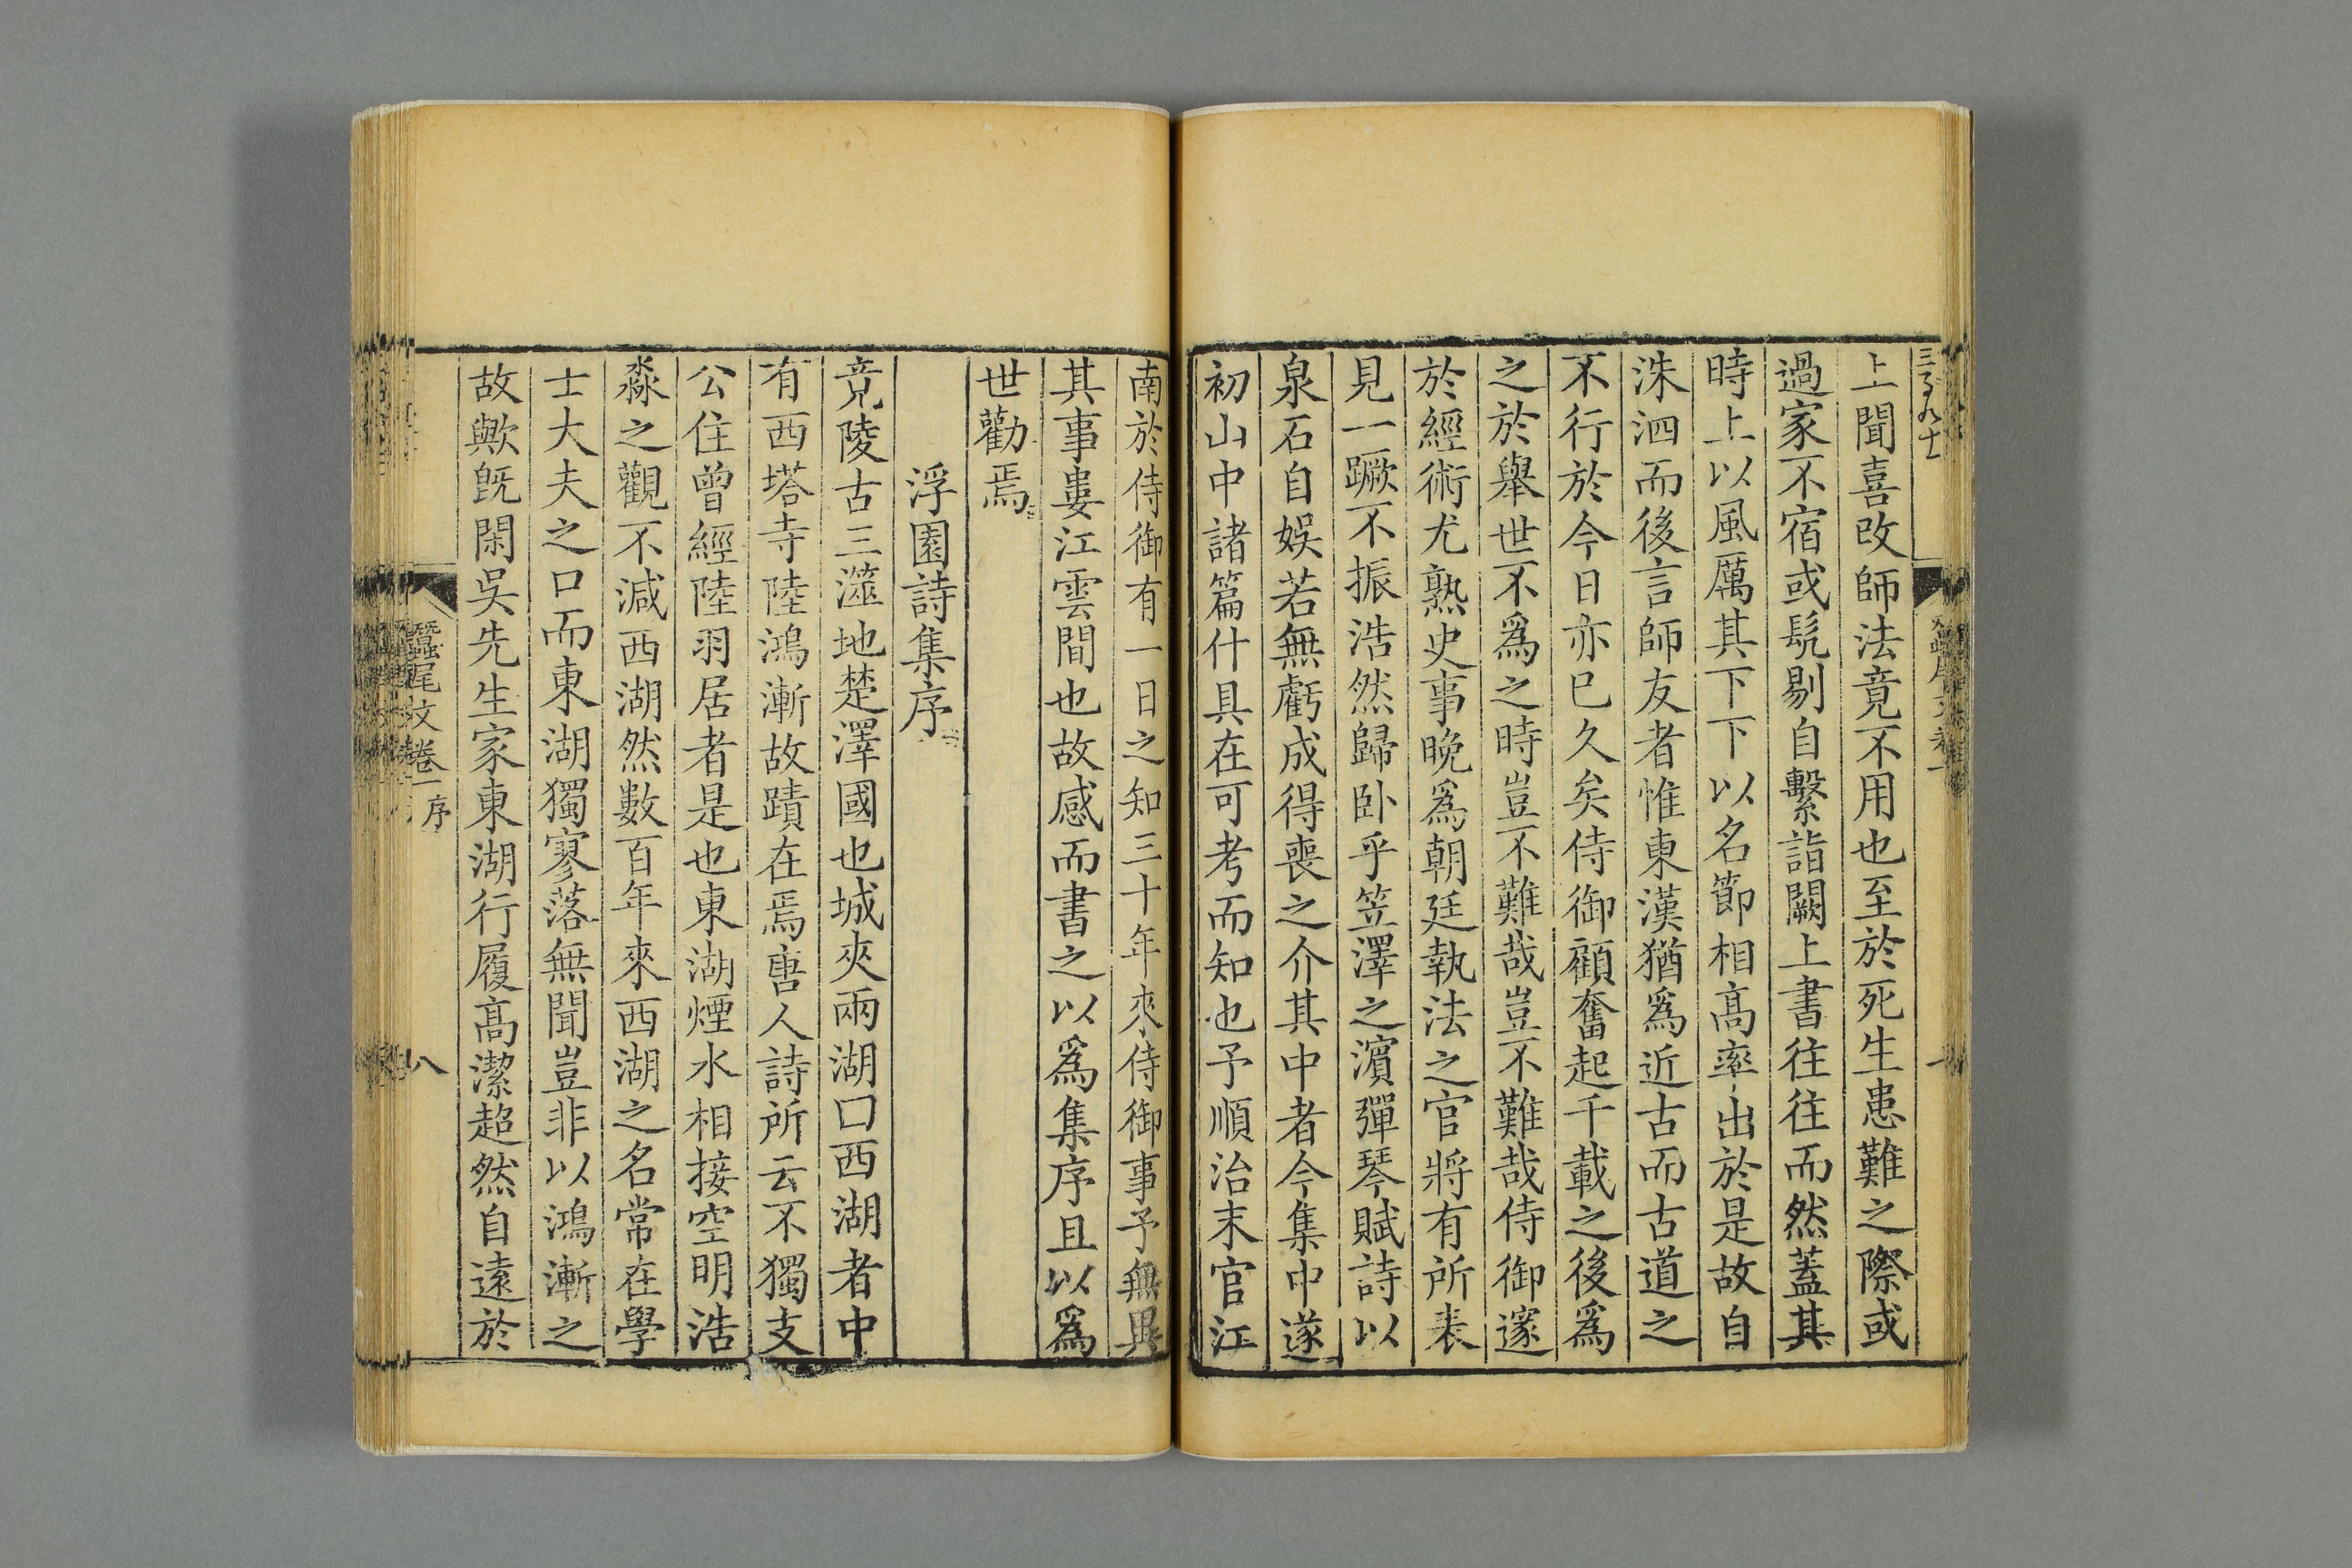 上聞喜改師法竟不用也至於死生患難之際或
過家不宿或髡剔自繫詣闕上書往往而然蓋其
時上以風厲其下下以名節相高率出於是故自
洙泗而後言師友者惟東漢猶爲近古而古道之
不行於今日亦已久矣侍御顧奮起千載之後爲
之於舉世不爲之時豈不難哉豈不難哉侍御邃
於經術尤熟史事晚爲朝廷執法之官將有所表
見一蹶不振浩然歸卧乎笠澤之濵彈琴賦詩以
泉石自娛若無虧成得喪之介其中者今集中遂
初山中諸篇什具在可考而知也予順治末官江
南於侍御有一日之知三十年來侍御事予無異
其事婁江雲間也故感而書之以爲集序且以爲
世勸焉
浮園詩集序
竟陵古三澨地楚澤國也城夾兩湖口西湖者中
有西塔寺陸鴻漸故蹟在焉唐人詩所云不獨支
公住曾經陸羽居者是也東湖煙水相接空明浩
淼之觀不減西湖然數百年來西湖之名常在學
士大夫之口而東湖獨寥落無聞豈非以鴻漸之
故歟旣閑吳先生家東湖行履高潔超然自遠於
蠶尾文卷一 序
八